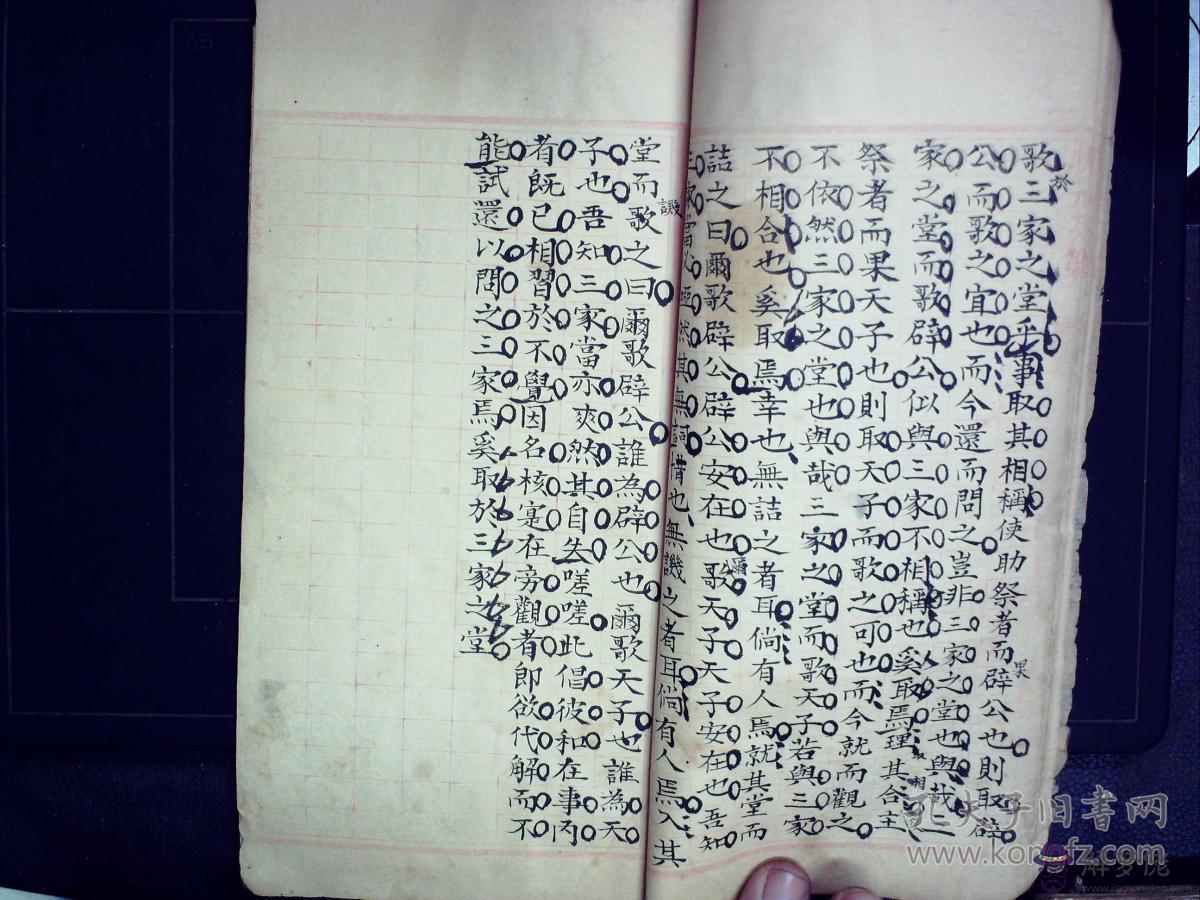 歌於三家之堂乎事取其相稱使助祭者而果辟公也則取辟
公而歌之宜也而今還而問之豈非三家之堂也與哉三
家之堂而歌辟公似與三家不相稱也奚取焉理其合主
祭者而果天子也則取天子而歌之可也而今就而觀之
不依然三家之堂也與哉三家之堂而歌天子若與三家
不相合也奚取焉幸也無詰之者耳倘有人焉就其堂而
詰之曰爾歌辟公辟公安在也爾歌天子天子安在也吾知
三家當必啞然其無詞惜也無譏之者耳倘有人焉入其
堂而譏歌之曰爾歌辟公誰為辟公也爾歌天子也誰為天
子也吾知三家當亦爽然其自失嗟嗟此倡彼和在事內
者既已相習於不覺因名核寔在旁觀者即欲代解而不
能試還以問之三家焉奚取於三家之堂
A5
孔夫子旧书网
www.kongfz.com
解夢佬